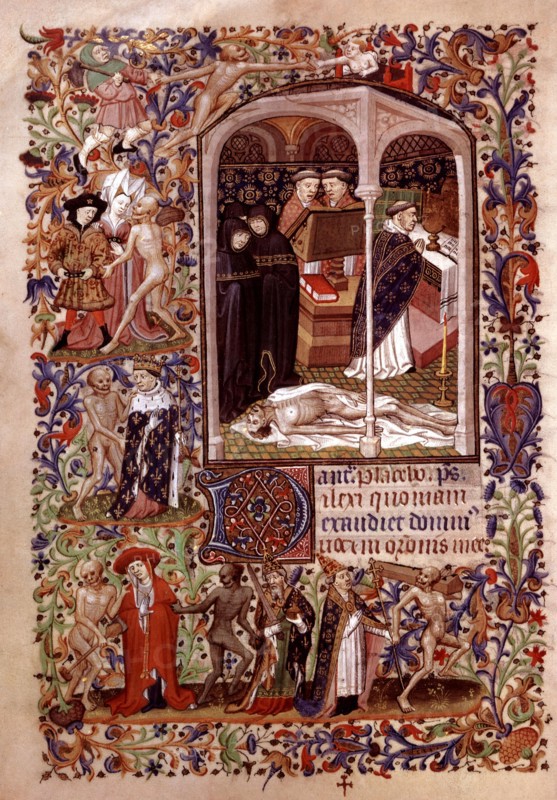 ant. Placebo. ps.
Dilexi quoniam
exaudiet dominꝰ
uocem orōnis mee